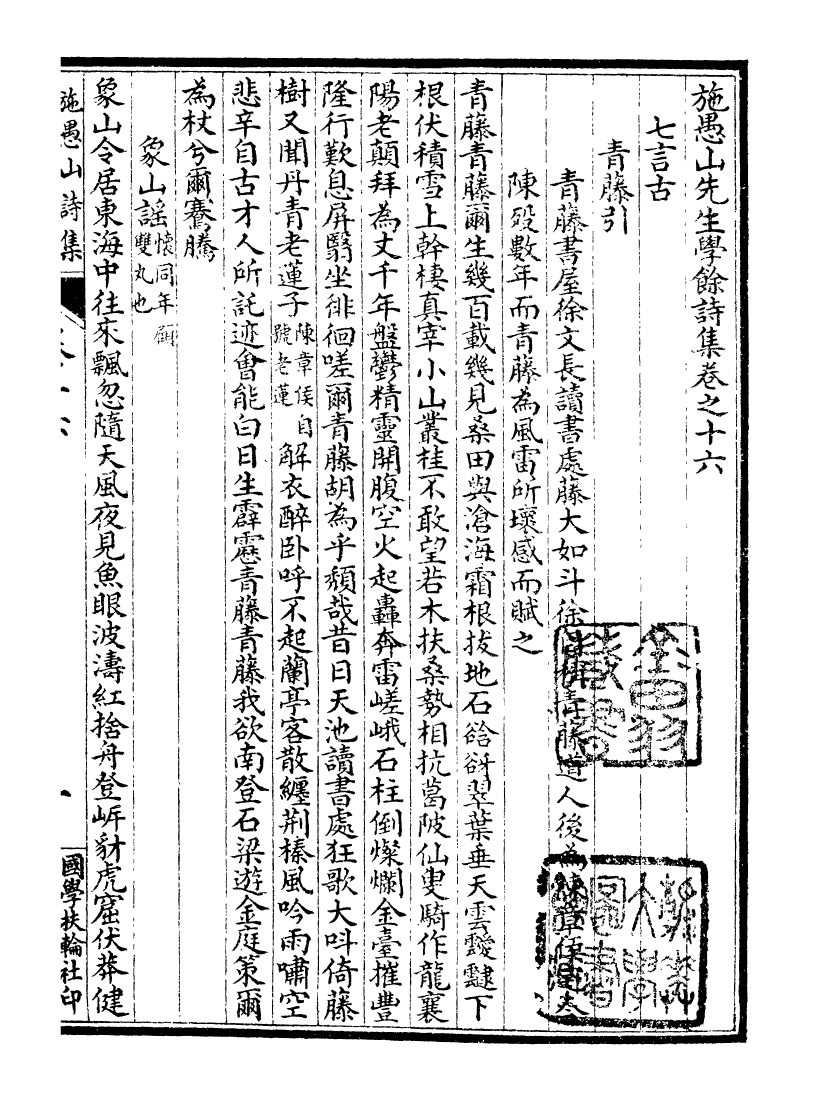 施愚山先生學餘詩集卷之十六
七言古
青藤引
青藤書屋徐文長讀書處藤大如斗徐自稱青藤道人後為陳章侯居夫
陳歿數年而青藤為風雷所壞感而賦之
青藤青藤爾生幾百載幾見桑田與滄海霜根拔地石谽谺翠葉垂天雲靉靆下
根伏積雪上幹棲真宰小山叢桂不敢望若木扶桑勢相抗葛陂仙叟騎作龍襄
陽老顛拜為丈千年盤鬱精靈開腹空火起轟奔雷嵯峨石柱倒燦爛金臺摧豐
隆行歎息屏翳坐徘徊嗟爾青藤胡為乎頹哉昔日天池讀書處狂歌大呌倚藤
樹又聞丹青老蓮子陳章侯自號老蓮解衣醉卧呼不起蘭亭客散纏荆榛風吟雨嘯空
悲辛自古才人所託迹會能白日生霹靂青藤青藤我欲南登石梁遊金庭策爾
為杖兮爾騫騰
象山謠懷同年顧雙丸也
象山令居東海中往來飄忽隨天風夜見魚眼波濤紅捨舟登岍豺虎窟伏莽健
施愚山詩集
卷十六
一
國學扶輪社印